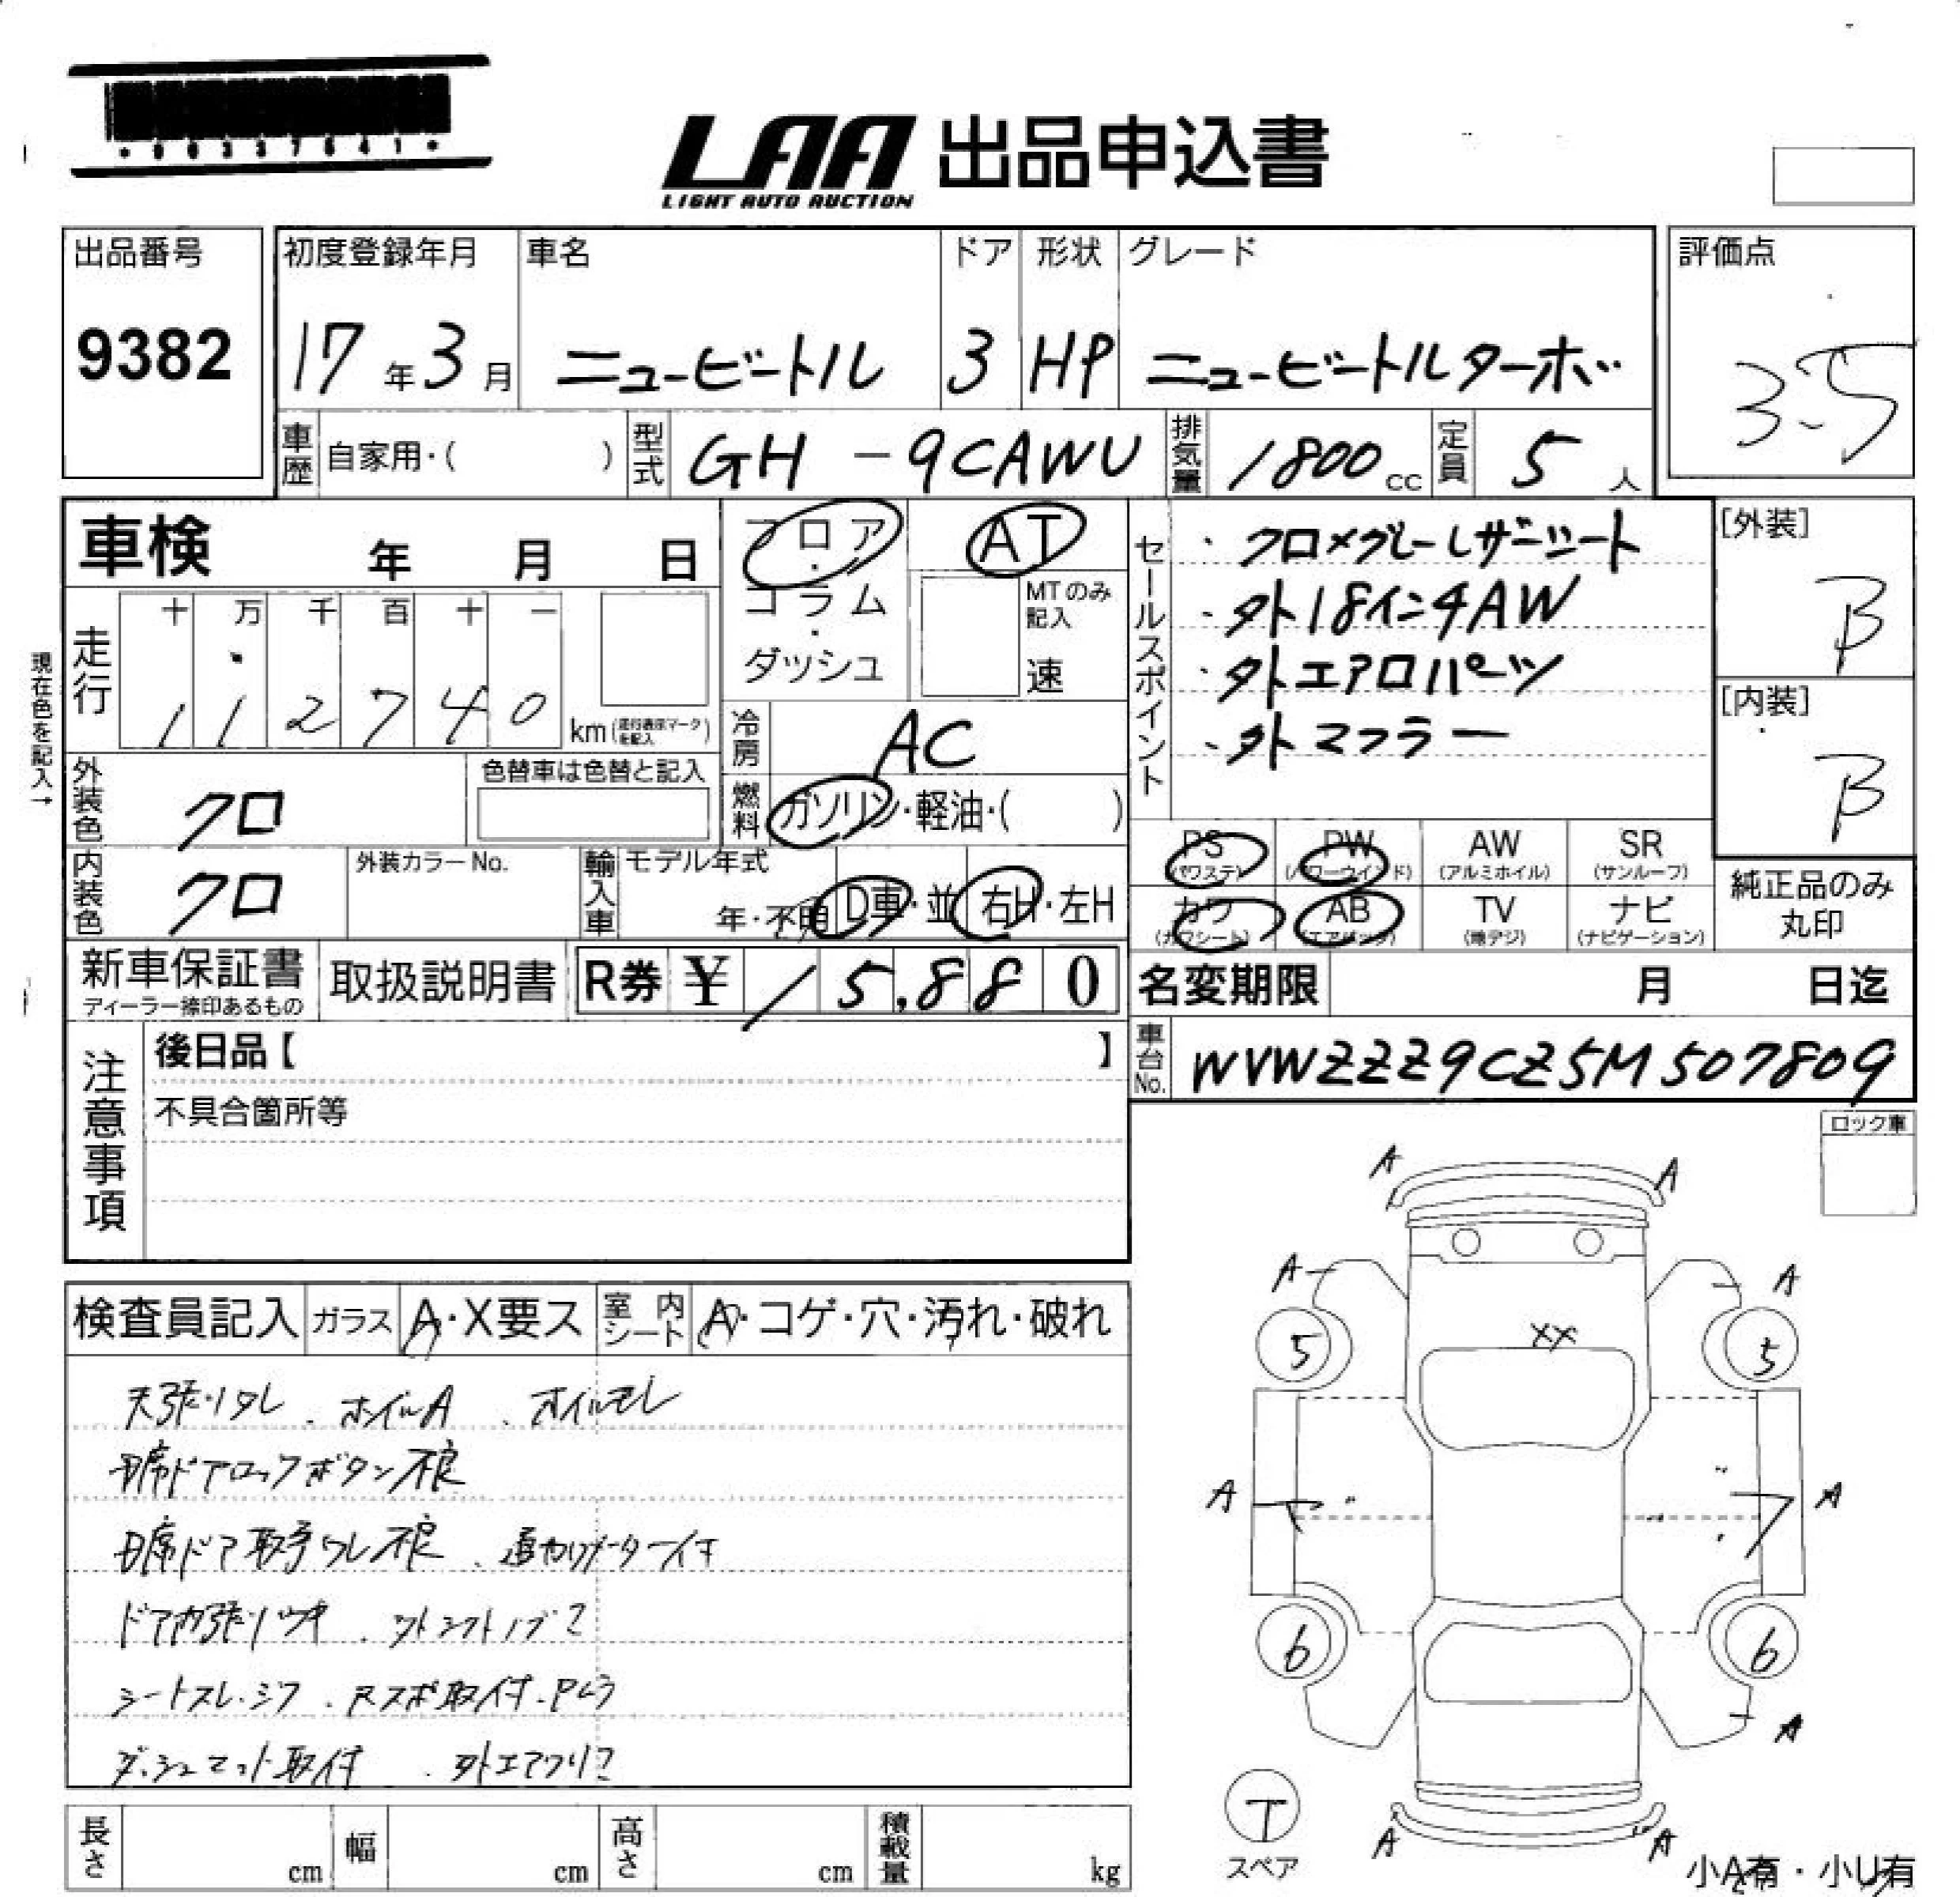 LAA 出品申込書
LIGHT AUTO AUCTION
出品番号
9382
初度登録年月
17年3月
車名
ニュービートル
ドア
3
形状
HP
グレード
ニュービートルターボ
評価点
3.5
車歴 自家用・( )
型式 GH-9CAWU
排気量 1800cc
定員 5人
車検 年 月 日
フロア・コラム・ダッシュ
AT
MTのみ記入
速
セールスポイント
・クロ×グレーレザーシート
・外18インチAW
・外エアロパーツ
・外マフラー
[外装]
B
[内装]
B
現在色を記入→
走行 十 万 千 百 十 一
112740 km (走行表示マークを記入)
冷房 AC
燃料 ガソリン・軽油・( )
外装色 クロ
色替車は色替と記入
内装色 クロ
外装カラーNo.
輸入車 モデル年式
年・不明 D車・並 右H・左H
PS (パワステ)
PW (パワーウインド)
AW (アルミホイル)
SR (サンルーフ)
カワ (カワシート)
AB (エアバック)
TV (地デジ)
ナビ (ナビゲーション)
純正品のみ
丸印
新車保証書
ディーラー捺印あるもの
取扱説明書
R券 ¥ 15,880
名変期限 月 日迄
車台No. WVWZZZ9CZ5M507809
注意事項
後日品【 】
不具合箇所等
ロック車
検査員記入 ガラス A・X要ス 室内シート A・コゲ・穴・汚れ・破れ
天張りタレ、ホイルA、オイルモレ
席ドアロックボタン不良
席ドア取手ワレ不良、追加メーター付
ドア内張りウキ、外シフトノブ
シートスレ・シワ、取付
ダッシュマット取付、外エアクリ
A A
A A
XX
5 5
A A
6 6
A
A A
T
スペア
小A有・小U有
長さ cm
幅 cm
高さ cm
積載量 kg